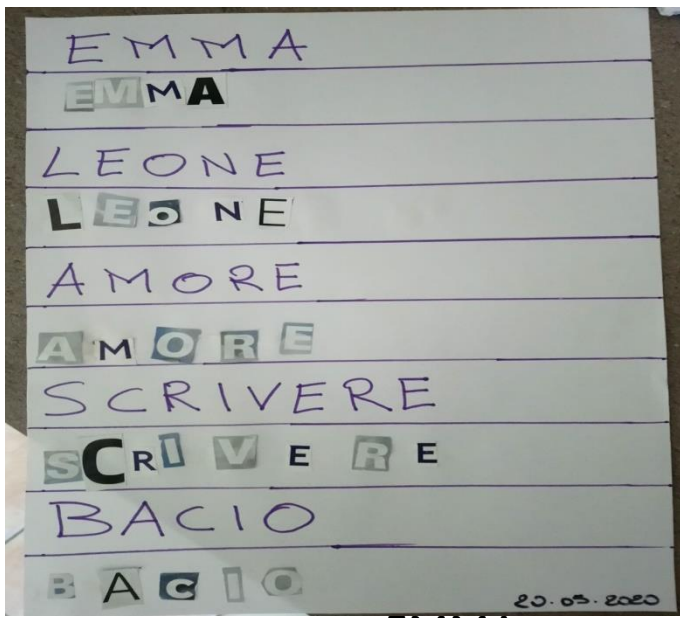 EMMA
EMMA
LEONE
LEoNE
AMORE
AMORE
SCRIVERE
SCRIVERE
BACIO
BACIO
20.05.2020